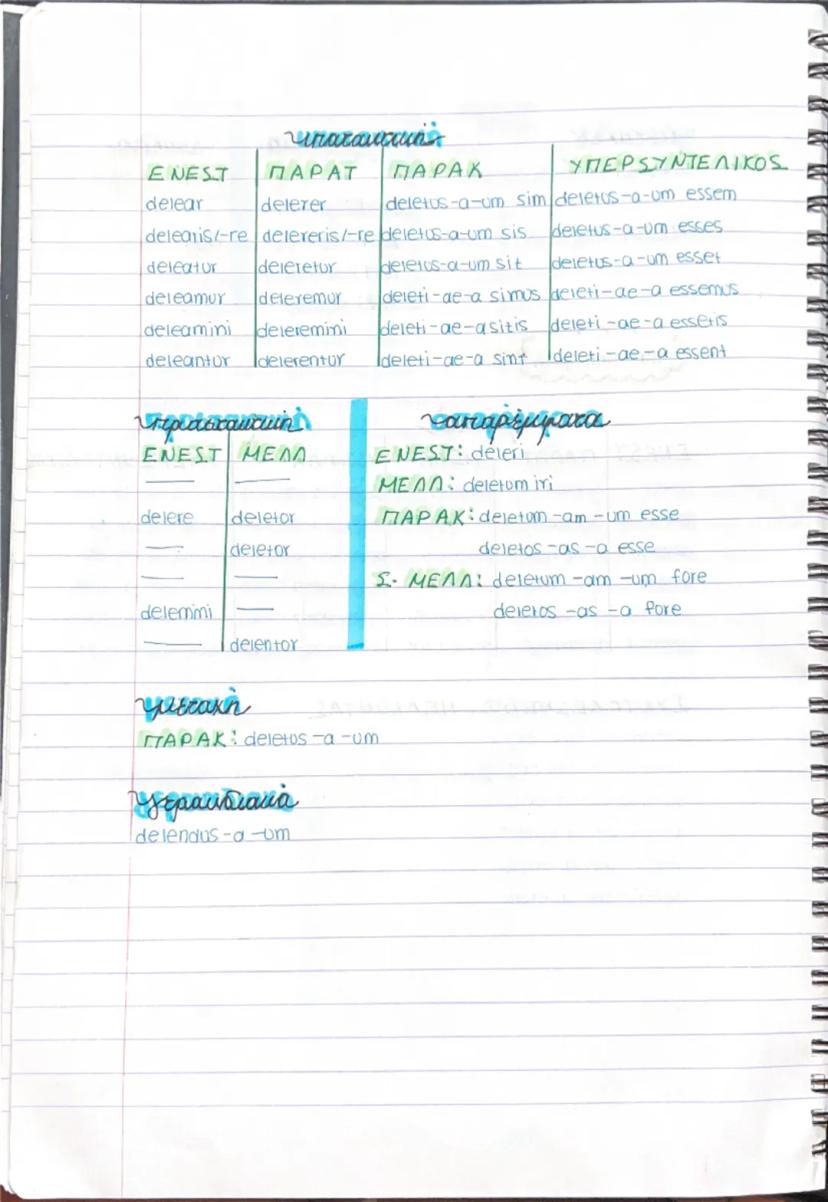 υποτακτική
ΕΝΕΣΤ ΠΑΡΑΤ ΠΑΡΑΚ ΥΠΕΡΣΥΝΤΕΛΙΚΟΣ
delear delerer deletus-a-um sim deletus-a-um essem
delearis/-re delereris/-re deletus-a-um sis deletus-a-um esses
deleatur deleretur deletus-a-um sit deletus-a-um esset
deleamur deleremur deleti-ae-a simus deleti-ae-a essemus
deleamini deleremini deleti-ae-a sitis deleti-ae-a essetis
deleantur delerentur deleti-ae-a sint deleti-ae-a essent
προστακτική απαρέμφατα
ΕΝΕΣΤ ΜΕΛΛ ΕΝΕΣΤ: deleri
— — ΜΕΛΛ: deletum iri
delere deletor ΠΑΡΑΚ: deletum -am -um esse
— deletor deletos -as -a esse
— — Σ. ΜΕΛΛ: deletum -am -um fore
delemini — deletos -as -a fore
— delentor
μετοχή
ΠΑΡΑΚ: deletus -a -um
γερουνδιακό
delendus -a -um